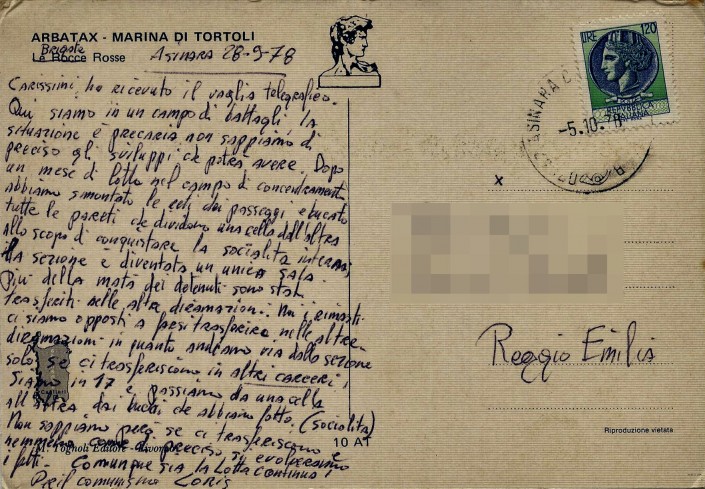 ARBATAX - MARINA DI TORTOLI
Brigate
Le Rocce Rosse
Asinara 28-9-78
Carissimi, ho ricevuto il vaglia telegrafico.
Qui siamo in un campo di battaglia, la
situazione è precaria non sappiamo di
preciso gli sviluppi che potrà avere. Dopo
un mese di lotta nel campo di concentramento
abbiamo smontato le reti dai passeggi e bucato
tutte le pareti che dividono una cella dall'altra
allo scopo di conquistare la socialità interna,
la sezione è diventata un unica sala.
Più della metà dei detenuti sono stati
trasferiti nelle altre diramazioni. Noi rimasti
ci siamo opposti a farsi trasferire nelle altre
diramazioni in quanto andiamo via dalla sezione
solo se ci trasferiscono in altri carceri,
siamo in 17 e passiamo da una cella
all'altra dai buchi che abbiamo fatto. (socialità)
Non sappiamo però se ci trasferiscono e
nemmeno come di preciso si evolveranno
i fatti. Comunque sia la Lotta continua
Per il comunismo Loris
M. Fognoli Editore
10 AT
LIRE 120
REPVBBLICA
ITALIANA
ASINARA
-5.10.78
x
Reggio Emilia
Riproduzione vietata